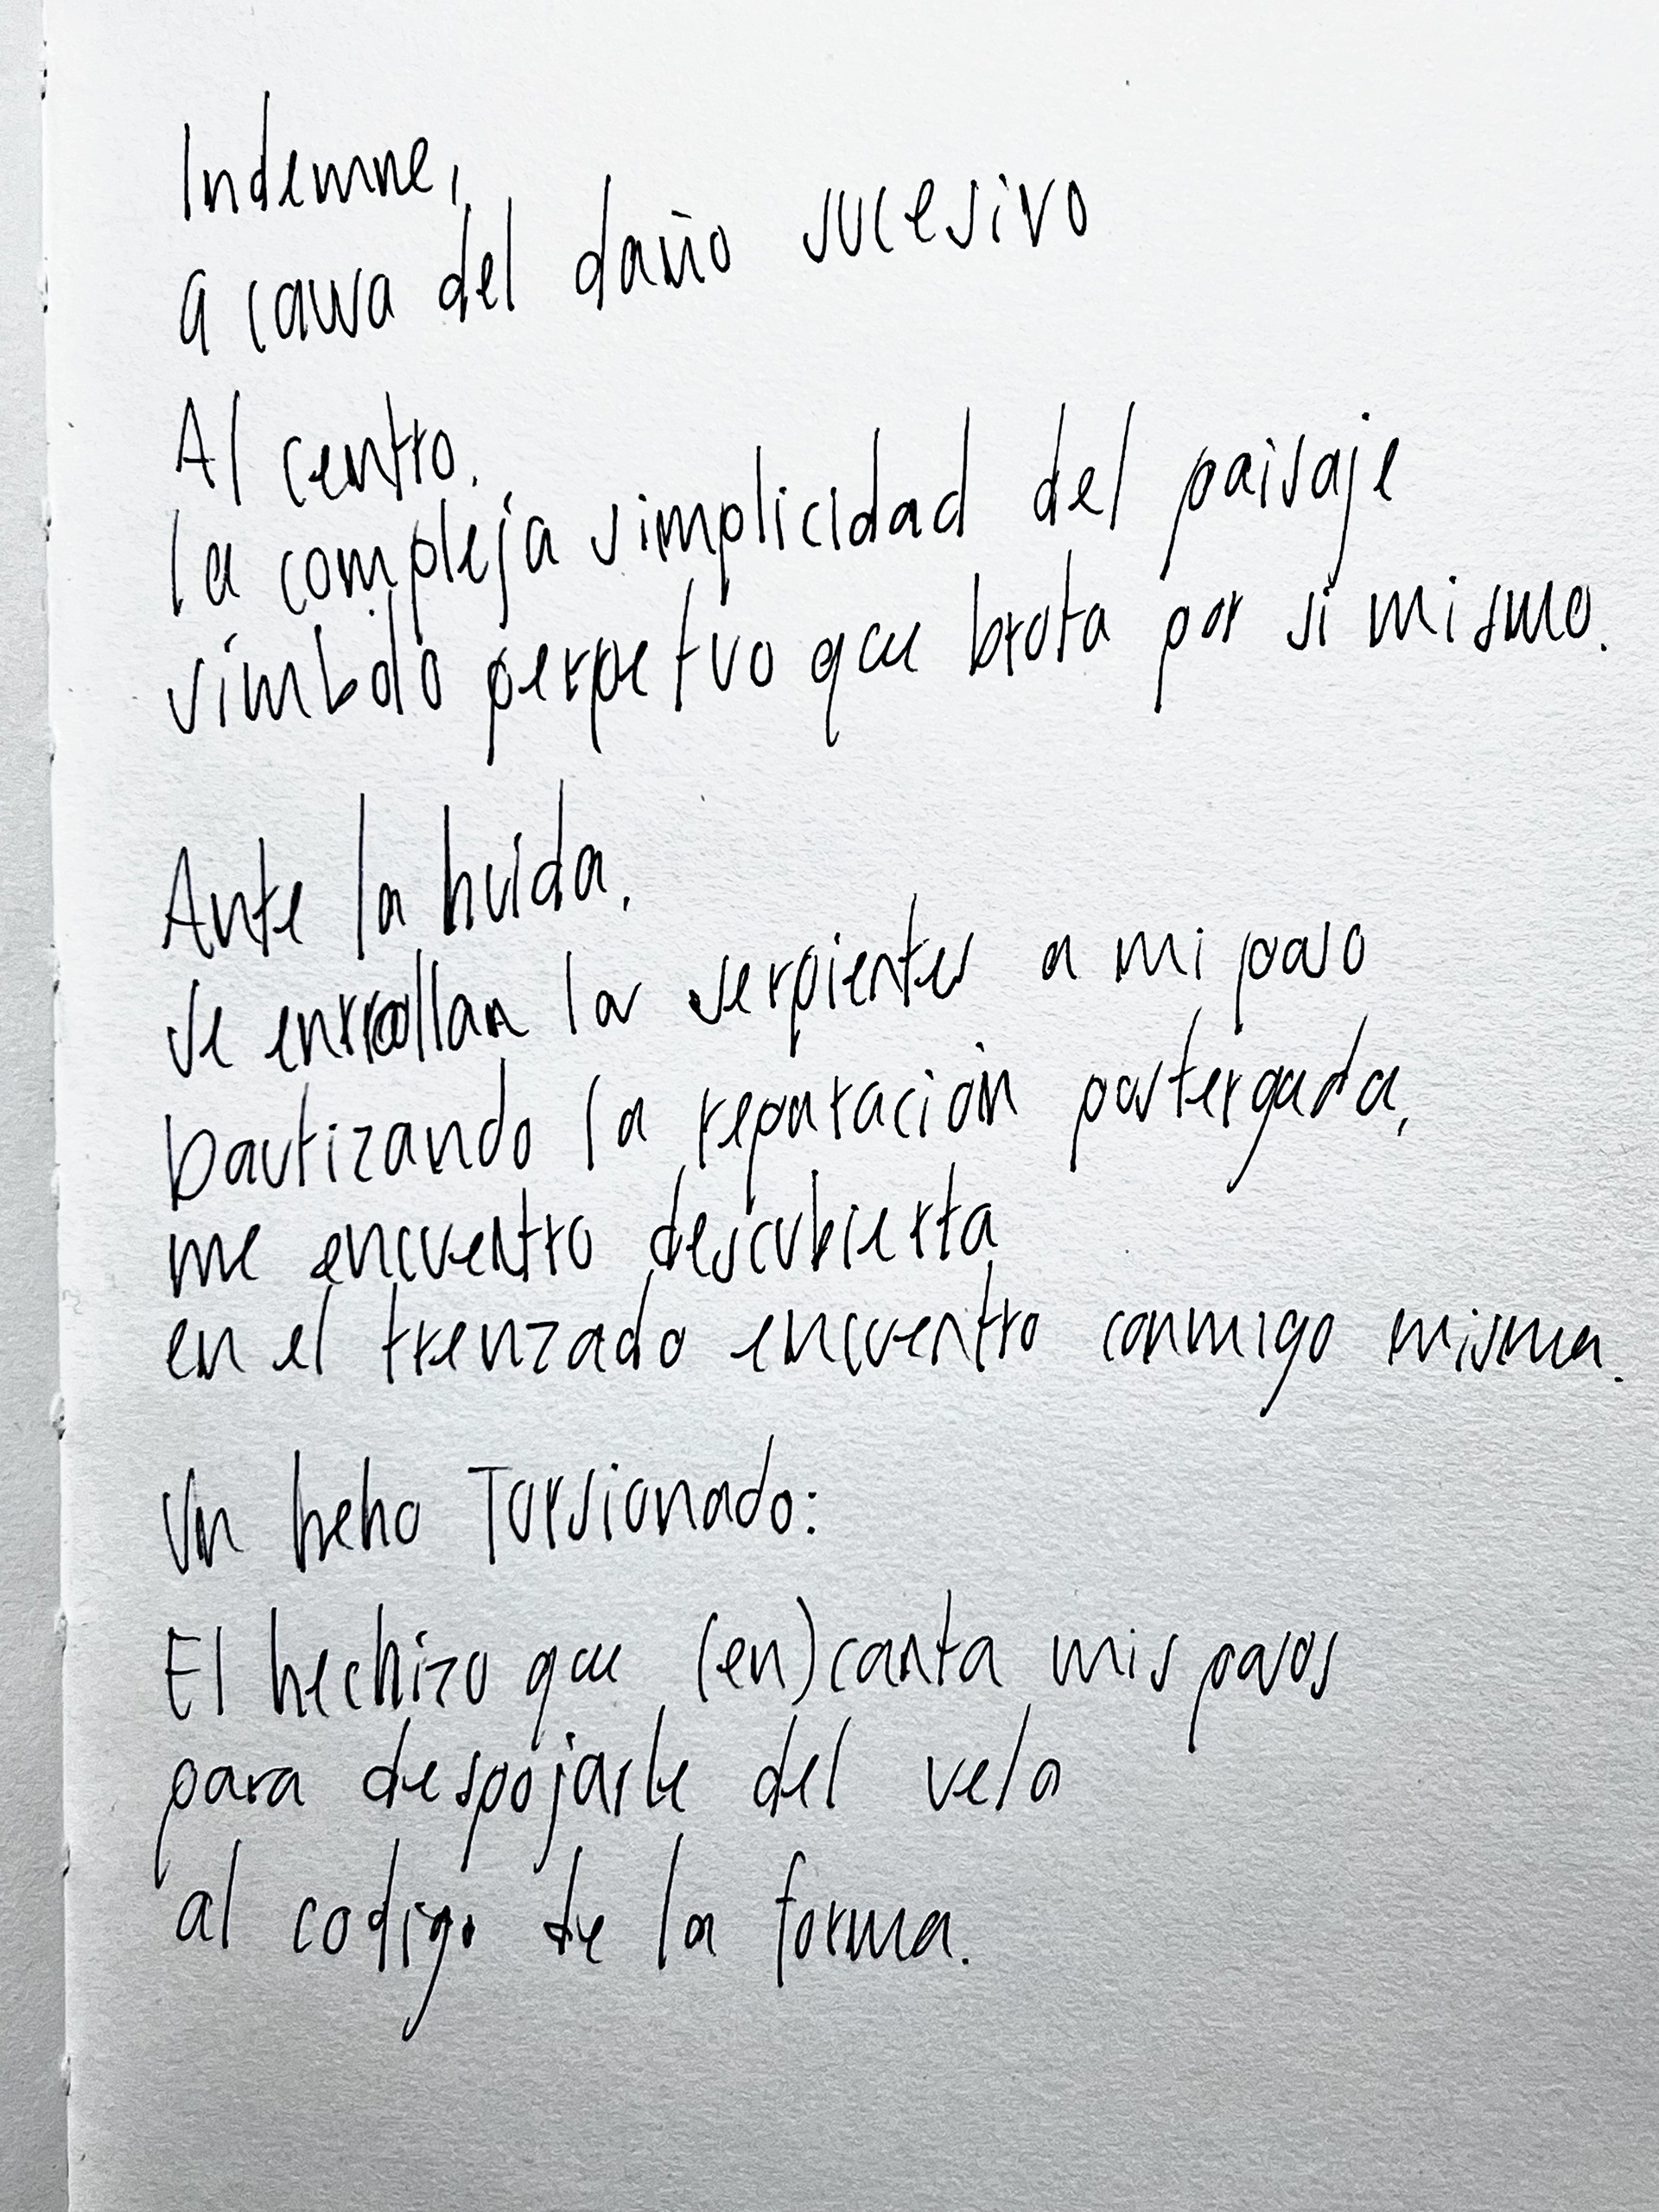 Indemne,
a causa del daño sucesivo
Al centro.
la compleja simplicidad del paisaje
símbolo perpetuo que brota por si mismo.
Ante la huida,
se enrollan las serpientes a mi paso
bautizando la reparación postergada,
me encuentro descubierta
en el trenzado encuentro conmigo misma.
Un heho Torsionado:
El hechizo que (en)canta mis pasos
para despojarle del velo
al codigo de la forma.